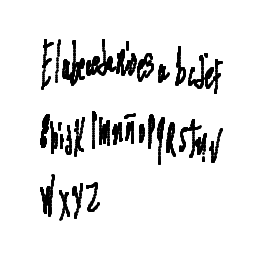 El abecedario es a bcdef
ghijk lmnñopqrstuv
wxyz